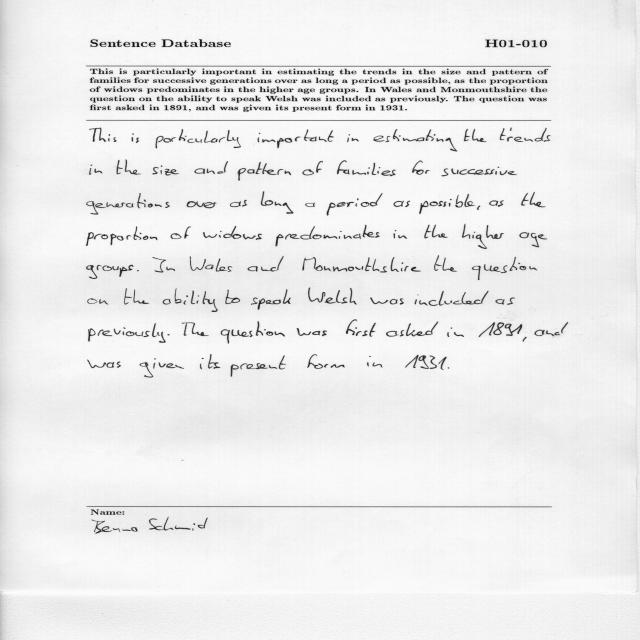 Sentence Database H01-010
This is particularly important in estimating the trends in the size and pattern of
families for successive generations over as long a period as possible, as the proportion
of widows predominates in the higher age groups. In Wales and Monmouthshire the
question on the ability to speak Welsh was included as previously. The question was
first asked in 1891, and was given its present form in 1931.
This is particularly important in estimating the trends
in the size and pattern of families for successive
generations over as long a period as possible, as the
proportion of widows predominates in the higher age
groups. In Wales and Monmouthshire the question
on the ability to speak Welsh was included as
previously. The question was first asked in 1891, and
was given its present form in 1931.
Name:
Benno Schmid